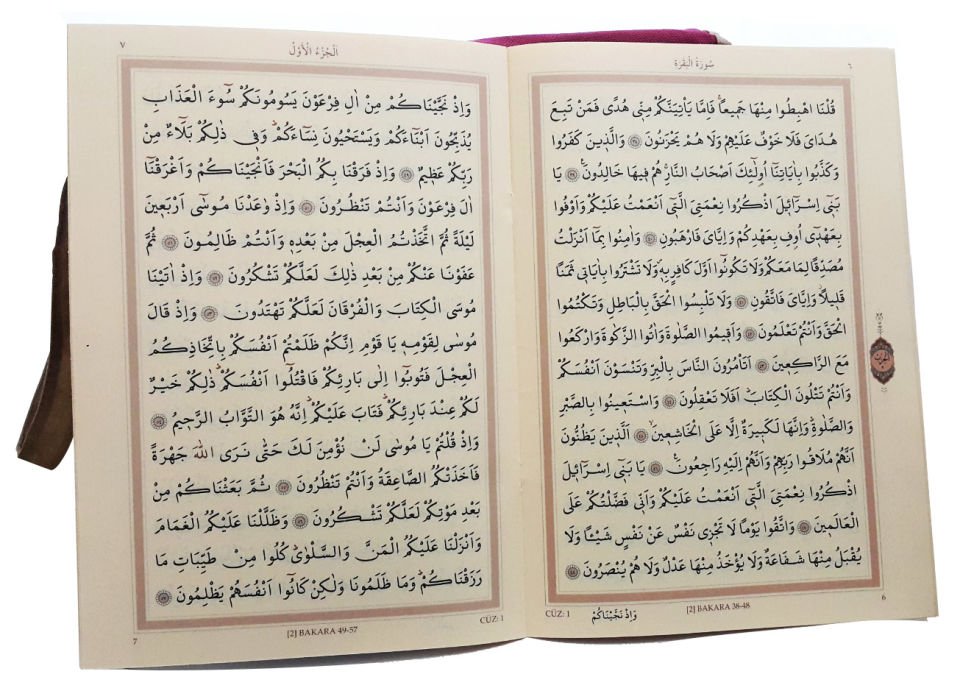 ٦
سُورَةُ الْبَقَرَةِ
قُلْنَا اهْبِطُوا مِنْهَا جَمٖيعًاۚ فَاِمَّا يَاْتِيَنَّكُمْ مِنّٖى هُدًى فَمَنْ تَبِعَ
هُدَاىَ فَلَا خَوْفٌ عَلَيْهِمْ وَلَا هُمْ يَحْزَنُونَ ﴿٣٨﴾ وَالَّذٖينَ كَفَرُوا
وَكَذَّبُوا بِاٰيَاتِنَٓا اُو۬لٰٓئِكَ اَصْحَابُ النَّارِۚ هُمْ فٖيهَا خَالِدُونَ۟ ﴿٣٩﴾ يَا
بَنٖٓى اِسْرَٓائٖلَ اذْكُرُوا نِعْمَتِىَ الَّتٖٓى اَنْعَمْتُ عَلَيْكُمْ وَاَوْفُوا
بِعَهْدٖٓى اُو۫فِ بِعَهْدِكُمْ وَاِيَّاىَ فَارْهَبُونِ ﴿٤٠﴾ وَاٰمِنُوا بِمَٓا اَنْزَلْتُ
مُصَدِّقًا لِمَا مَعَكُمْ وَلَا تَكُونُٓوا اَوَّلَ كَافِرٍ بِهٖۖ وَلَا تَشْتَرُوا بِاٰيَاتٖى ثَمَنًا
قَلٖيلًاۘ وَاِيَّاىَ فَاتَّقُونِ ﴿٤١﴾ وَلَا تَلْبِسُوا الْحَقَّ بِالْبَاطِلِ وَتَكْتُمُوا
الْحَقَّ وَاَنْتُمْ تَعْلَمُونَ ﴿٤٢﴾ وَاَقٖيمُوا الصَّلٰوةَ وَاٰتُوا الزَّكٰوةَ وَارْكَعُوا
مَعَ الرَّاكِعٖينَ ﴿٤٣﴾ اَتَاْمُرُونَ النَّاسَ بِالْبِرِّ وَتَنْسَوْنَ اَنْفُسَكُمْ
وَاَنْتُمْ تَتْلُونَ الْكِتَابَۜ اَفَلَا تَعْقِلُونَ ﴿٤٤﴾ وَاسْتَعٖينُوا بِالصَّبْرِ
وَالصَّلٰوةِۜ وَاِنَّهَا لَكَبٖيرَةٌ اِلَّا عَلَى الْخَاشِعٖينَۙ ﴿٤٥﴾ اَلَّذٖينَ يَظُنُّونَ
اَنَّهُمْ مُلَاقُوا رَبِّهِمْ وَاَنَّهُمْ اِلَيْهِ رَاجِعُونَ۟ ﴿٤٦﴾ يَا بَنٖٓى اِسْرَٓائٖلَ
اذْكُرُوا نِعْمَتِىَ الَّتٖٓى اَنْعَمْتُ عَلَيْكُمْ وَاَنّٖى فَضَّلْتُكُمْ عَلَى
الْعَالَمٖينَ ﴿٤٧﴾ وَاتَّقُوا يَوْمًا لَا تَجْزٖى نَفْسٌ عَنْ نَفْسٍ شَيْـًٔا وَلَا
يُقْبَلُ مِنْهَا شَفَاعَةٌ وَلَا يُؤْخَذُ مِنْهَا عَدْلٌ وَلَا هُمْ يُنْصَرُونَ ﴿٤٨﴾
وَاِذْ نَجَّيْنَاكُمْ
[2] BAKARA 38-48
CÜZ: 1
6
اَلْجُزْءُ الْاَوَّلُ
٧
وَاِذْ نَجَّيْنَاكُمْ مِنْ اٰلِ فِرْعَوْنَ يَسُومُونَكُمْ سُٓوءَ الْعَذَابِ
يُذَبِّحُونَ اَبْنَٓاءَكُمْ وَيَسْتَحْيُونَ نِسَٓاءَكُمْۜ وَفٖى ذٰلِكُمْ بَلَٓاءٌ مِنْ
رَبِّكُمْ عَظٖيمٌ ﴿٤٩﴾ وَاِذْ فَرَقْنَا بِكُمُ الْبَحْرَ فَاَنْجَيْنَاكُمْ وَاَغْرَقْنَٓا
اٰلَ فِرْعَوْنَ وَاَنْتُمْ تَنْظُرُونَ ﴿٥٠﴾ وَاِذْ وٰعَدْنَا مُوسٰٓى اَرْبَعٖينَ
لَيْلَةً ثُمَّ اتَّخَذْتُمُ الْعِجْلَ مِنْ بَعْدِهٖ وَاَنْتُمْ ظَالِمُونَ ﴿٥١﴾ ثُمَّ
عَفَوْنَا عَنْكُمْ مِنْ بَعْدِ ذٰلِكَ لَعَلَّكُمْ تَشْكُرُونَ ﴿٥٢﴾ وَاِذْ اٰتَيْنَا
مُوسَى الْكِتَابَ وَالْفُرْقَانَ لَعَلَّكُمْ تَهْتَدُونَ ﴿٥٣﴾ وَاِذْ قَالَ
مُوسٰى لِقَوْمِهٖ يَا قَوْمِ اِنَّكُمْ ظَلَمْتُمْ اَنْفُسَكُمْ بِاتِّخَاذِكُمُ
الْعِجْلَ فَتُوبُٓوا اِلٰى بَارِئِكُمْ فَاقْتُلُٓوا اَنْفُسَكُمْۜ ذٰلِكُمْ خَيْرٌ
لَكُمْ عِنْدَ بَارِئِكُمْۜ فَتَابَ عَلَيْكُمْۜ اِنَّهُ هُوَ التَّوَّابُ الرَّحٖيمُ ﴿٥٤﴾
وَاِذْ قُلْتُمْ يَا مُوسٰى لَنْ نُؤْمِنَ لَكَ حَتّٰى نَرَى اللّٰهَ جَهْرَةً
فَاَخَذَتْكُمُ الصَّاعِقَةُ وَاَنْتُمْ تَنْظُرُونَ ﴿٥٥﴾ ثُمَّ بَعَثْنَاكُمْ مِنْ
بَعْدِ مَوْتِكُمْ لَعَلَّكُمْ تَشْكُرُونَ ﴿٥٦﴾ وَظَلَّلْنَا عَلَيْكُمُ الْغَمَامَ
وَاَنْزَلْنَا عَلَيْكُمُ الْمَنَّ وَالسَّلْوٰىۜ كُلُوا مِنْ طَيِّبَاتِ مَا
رَزَقْنَاكُمْۜ وَمَا ظَلَمُونَا وَلٰكِنْ كَانُٓوا اَنْفُسَهُمْ يَظْلِمُونَ ﴿٥٧﴾
CÜZ: 1
[2] BAKARA 49-57
7